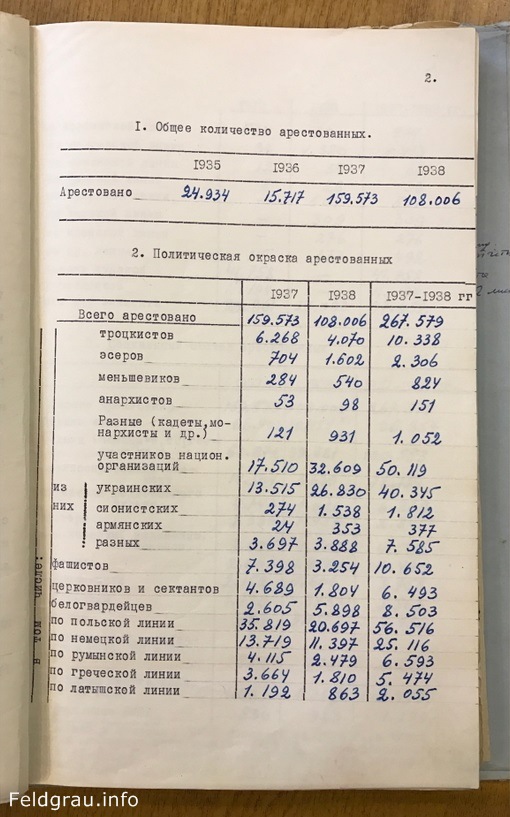 2.
I. Общее количество арестованных.
I935 I936 I937 I938
Арестовано 24.934 15.717 159.573 108.006
2. Политическая окраска арестованных
I937 I938 I937-I938 гг
Всего арестовано 159.573 108.006 267.579
троцкистов 6.268 4.070 10.338
эсеров 704 1.602 2.306
меньшевиков 284 540 824
анархистов 53 98 151
Разные (кадеты,мо-
нархисты и др.) 121 931 1.052
участников национ.
организаций 17.510 32.609 50.119
из украинских 13.515 26.830 40.345
них сионистских 274 1.538 1.812
армянских 24 353 377
разных 3.697 3.888 7.585
фашистов 7.398 3.254 10.652
церковников и сектантов 4.689 1.804 6.493
белогвардейцев 2.605 5.898 8.503
по польской линии 35.819 20.697 56.516
по немецкой линии 13.719 11.397 25.116
по румынской линии 4.115 2.479 6.593
по греческой линии 3.664 1.810 5.474
по латышской линии 1.192 863 2.055
в том числе:
Feldgrau.info